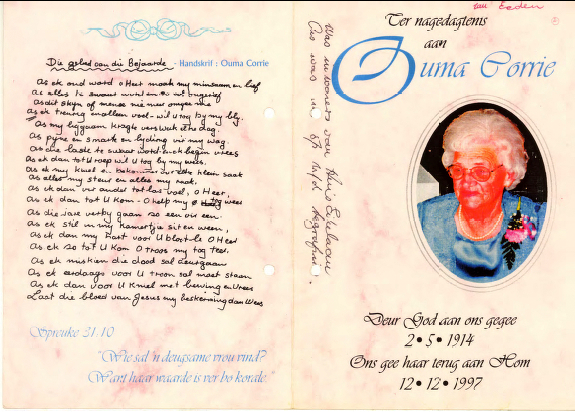 Die gebed van die Bejaarde - Handskrif : Ouma Corrie
As ek oud word o Heer maak my minsaam en lief
As alles te swaar word en
As dit skyn of mense nie meer omgee nie
As ek treurig en alleen voel - wil U tog by my bly.
As my liggaam kragte verswak elke dag.
As pyne en smarte en lyding vir my wag.
As die laste te swaar word en ek begin vrees
As ek dan tot U roep wil U tog by my wees.
As ek my kniel en
As alles my steur en alles my raak.
As ek dan verander tot las voel, O Heer,
As ek dan tot U Kom - O help my tog weer
As die jare verby gaan so een vir een.
As ek stil in my Kamertjie sit en ween,
As ek dan my hart voor U blootlê O Heer
As ek so tot U Kom O troos my tog teer.
As ek miskien die dood sal deurgaan
As ek eerdaags voor U troon sal moet staan
As ek dan voor U Kniel met bewing en vrees
Laat die bloed van Jesus my beskerming dan wees
Spreuke 31:10
"Wie sal 'n deugsame vrou vind?
Want haar waarde is ver bo korale."
van Eeden
Ter nagedagtenis
aan
Ouma Corrie
Was inwoner van Huis
Ons was
Deur God aan ons gegee
2•5•1914
Ons gee haar terug aan Hom
12•12•1997